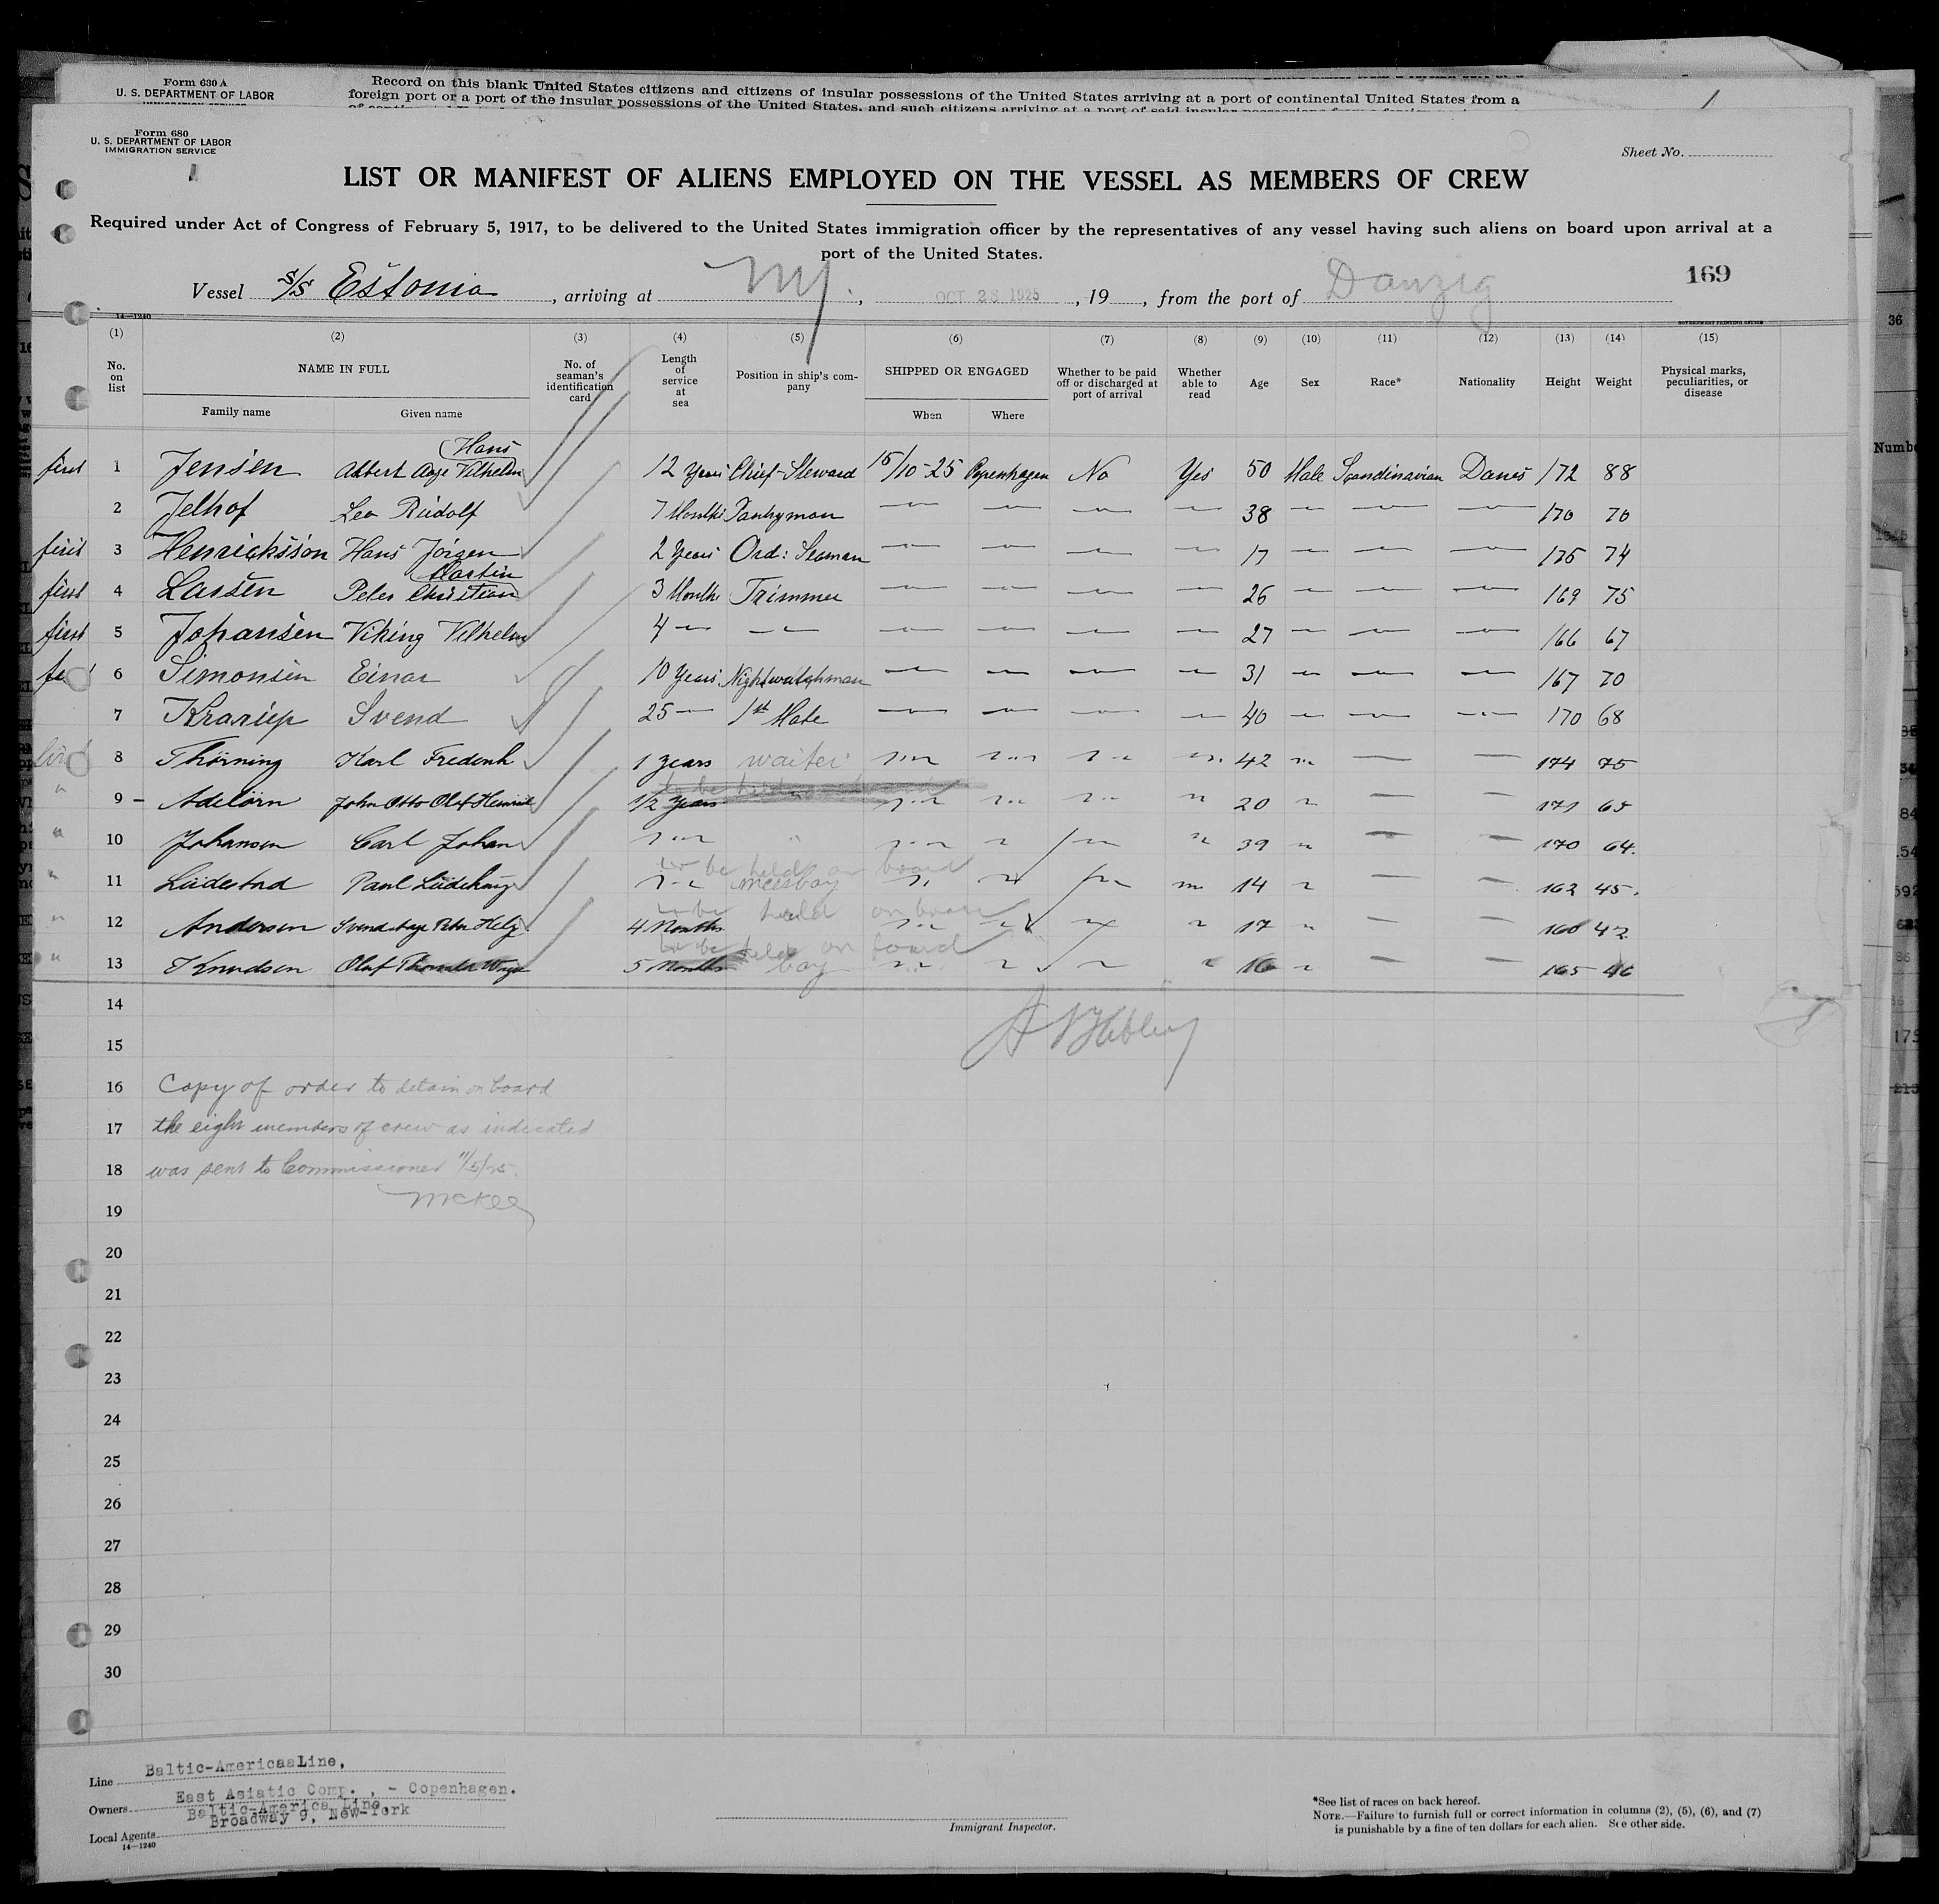 Form 630 A
U. S. DEPARTMENT OF LABOR
Record on this blank United States citizens and citizens of insular possessions of the United States arriving at a port of continental United States from a
foreign port or a port of the insular possessions of the United States, and such citizens arriving at a port of said insular possessions from a foreign
1
Form 680
U. S. DEPARTMENT OF LABOR
IMMIGRATION SERVICE
1
Sheet No.
LIST OR MANIFEST OF ALIENS EMPLOYED ON THE VESSEL AS MEMBERS OF CREW
Required under Act of Congress of February 5, 1917, to be delivered to the United States immigration officer by the representatives of any vessel having such aliens on board upon arrival at a
port of the United States.
169
Vessel S/S Estonia, arriving at NY., OCT 23 1925, 19, from the port of Danzig
14—1240
GOVERNMENT PRINTING OFFICE
(1) (2) (3) (4) (5) (6) (7) (8) (9) (10) (11) (12) (13) (14) (15)
No. on list
NAME IN FULL
Family name
Given name
No. of seaman's identification card
Length of service at sea
Position in ship's company
SHIPPED OR ENGAGED
When
Where
Whether to be paid off or discharged at port of arrival
Whether able to read
Age
Sex
Race*
Nationality
Height
Weight
Physical marks, peculiarities, or disease
Hans
first 1 Jensen Albert Aage Vilhelm 12 Years Chief-Steward 15/10-25 Copenhagen No Yes 50 Male Scandinavian Danes 172 88
2 Jelhof Leo Rudolf 7 Months Pantryman — — — — 38 — — — 170 70
first 3 Henricksson Hans Jörgen 2 Years Ord: Seaman — — — — 17 — — — 175 74
Martin
first 4 Larsen Peter Christian 3 Months Trimmer — — — — 26 — — — 169 75
first 5 Johansen Viking Vilhelm 4 — — — — — — 27 — — — 166 67
6 Simonsen Einar 10 Years Nightwatchman — — — — 31 — — — 167 70
7 Krarup Svend 25 — 1st Mate — — — — 40 — — — 170 68
8 Thörning Karl Frederik 1 years waiter 42 — — 174 75
9 - John Otto Olaf Heinrich 1/2 years 20 — — 171 65
" 10 Johansen Carl Johan " 39 — — 170 64.
to be held on board
" 11 Paul messboy 14 — — 162 45.
to be held on board
" 12 Andersen 4 Months 17 — — 160 42
to be held on board
" 13 Knudsen Olaf 5 Months boy 16 — — 165 46
14
15
16 Copy of order to detain on board
17 the eight members of crew as indicated
18 was sent to Commissioner 11/5/25.
19 McKee
20
21
22
23
24
25
26
27
28
29
30
Line Baltic-AmericaaLine,
Owners East Asiatic Comp., - Copenhagen.
Baltic-America Line,
Local Agents Broadway 9, New-York
14—1240
Immigrant Inspector.
*See list of races on back hereof.
NOTE.—Failure to furnish full or correct information in columns (2), (5), (6), and (7)
is punishable by a fine of ten dollars for each alien. See other side.